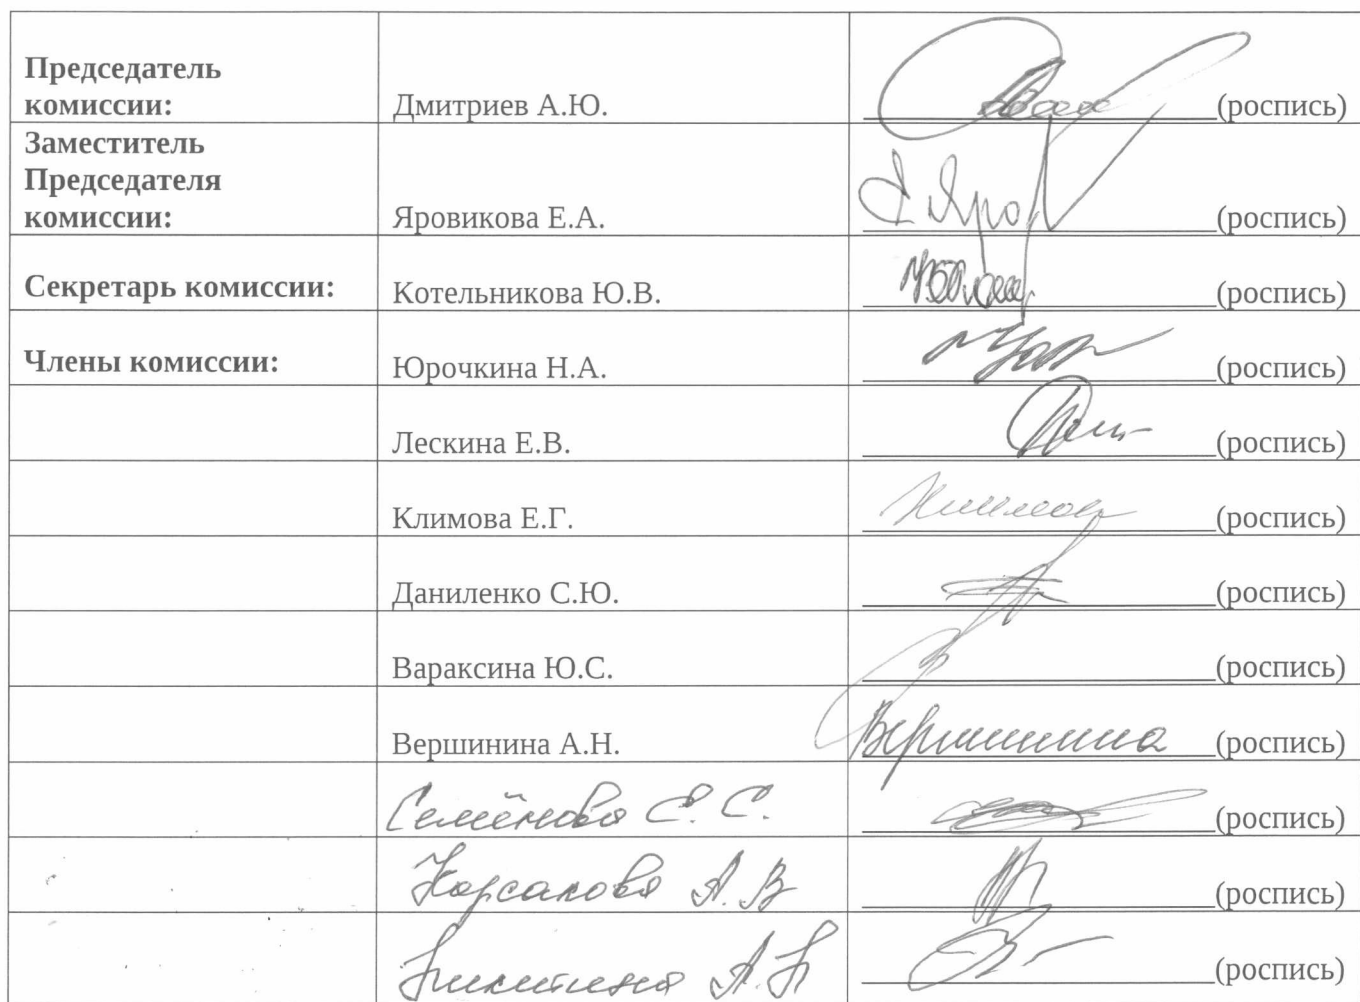 Председатель
комиссии: Дмитриев А.Ю. (роспись)
Заместитель
Председателя
комиссии: Яровикова Е.А. (роспись)
Секретарь комиссии: Котельникова Ю.В. (роспись)
Члены комиссии: Юрочкина Н.А. (роспись)
Лескина Е.В. (роспись)
Климова Е.Г. (роспись)
Даниленко С.Ю. (роспись)
Вараксина Ю.С. (роспись)
Вершинина А.Н. Вершинина (роспись)
Семёнова Е. С. (роспись)
Корсакова А. В (роспись)
Никитина А. (роспись)